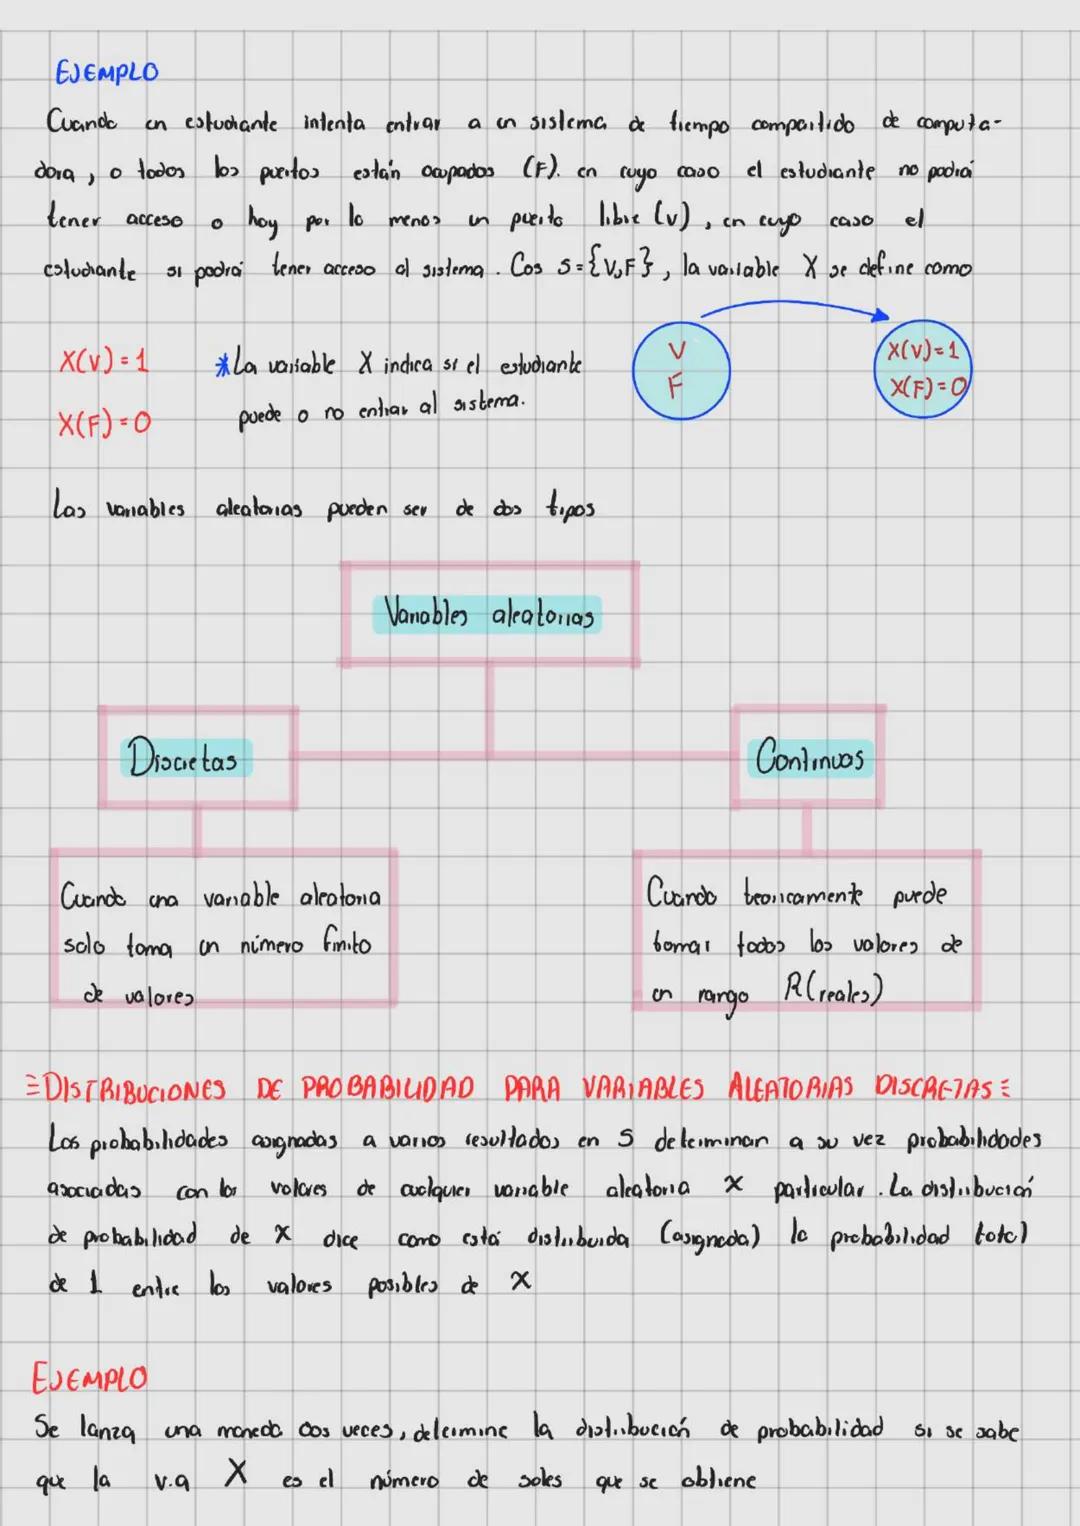 EJEMPLO
Cuando un estudiante intenta entrar a un sistema de tiempo compartido de computa-
dora, o todos los puertos están ocupados (F). en cuyo caso el estudiante no podrá
tener acceso o hay por lo menos un puerto libre (v), en cuyo caso el
estudiante si podrá tener acceso al sistema. Cos S={V,F}, la variable X se define como
X(V)=1
X(F)=0
*La variable X indica si el estudiante
puede o no entrar al sistema.
V
F
X(V)=1
X(F)=0
Las variables aleatorias pueden ser de dos tipos
Variables aleatorias
Discretas
Continuas
Cuando una variable aleatoria
solo toma un número finito
de valores
Cuando teoricamente puede
tomar todos los valores de
un rango R(reales)
≡DISTRIBUCIONES DE PROBABILIDAD PARA VARIABLES ALEATORIAS DISCRETAS≡
Las probabilidades asignadas a varios resultados en S determinan a su vez probabilidades
asociadas con los valores de cualquier variable aleatoria x particular. La distribución
de probabilidad de x dice como está distribuida (asignada) la probabilidad total
de 1 entre los valores posibles de x
EJEMPLO
Se lanza una moneda dos veces, determine la distribución de probabilidad si se sabe
que la v.a X es el número de soles que se obtiene